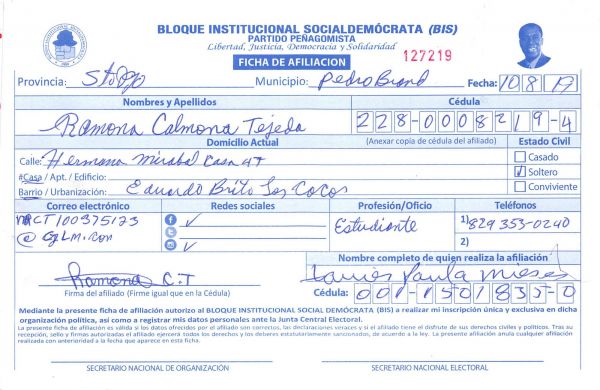 BLOQUE INSTITUCIONAL SOCIALDEMÓCRATA (BIS)
PARTIDO PEÑAGOMISTA
Libertad, Justicia, Democracia y Solidaridad
FICHA DE AFILIACION
127219
Provincia: Sto Dgo Municipio: Pedro Brand Fecha: 10 8 19
Nombres y Apellidos Cédula
Ramona Calmona Tejeda 228-0008219-4
Domicilio Actual (Anexar copia de cédula del afiliado) Estado Civil
Calle: Hermana Mirabal Casa 47 Casado
#Casa / Apt. / Edificio: Soltero
Barrio / Urbanización: Eduardo Brito Los Cocos Conviviente
Correo electrónico Redes sociales Profesión/Oficio Teléfonos
CT100375123 Estudiante 1) 829 353-0240
2)
Nombre completo de quien realiza la afiliación
Ramona C.T Paula Mieses
Firma del afiliado (Firme igual que en la Cédula) Cédula: 001-1501835-0
Mediante la presente ficha de afiliación autorizo al BLOQUE INSTITUCIONAL SOCIAL DEMÓCRATA (BIS) a realizar mi inscripción única y exclusiva en dicha
organización política, así como a registrar mis datos personales ante la Junta Central Electoral.
La presente ficha de afiliación es válida si los datos ofrecidos por el afiliado son correctos, las declaraciones veraces y si el afiliado tiene el disfrute de sus derechos civiles y políticos. Tras su
recepción, sello y firmas autorizadas el afiliado ejercerá todos los derechos y los deberes estatutariamente sancionados, de acuerdo a la ley. La presente afiliación anula cualquier afiliación
realizada con anterioridad a la fecha que aparece en esta ficha.
SECRETARIO NACIONAL DE ORGANIZACIÓN SECRETARIO NACIONAL ELECTORAL